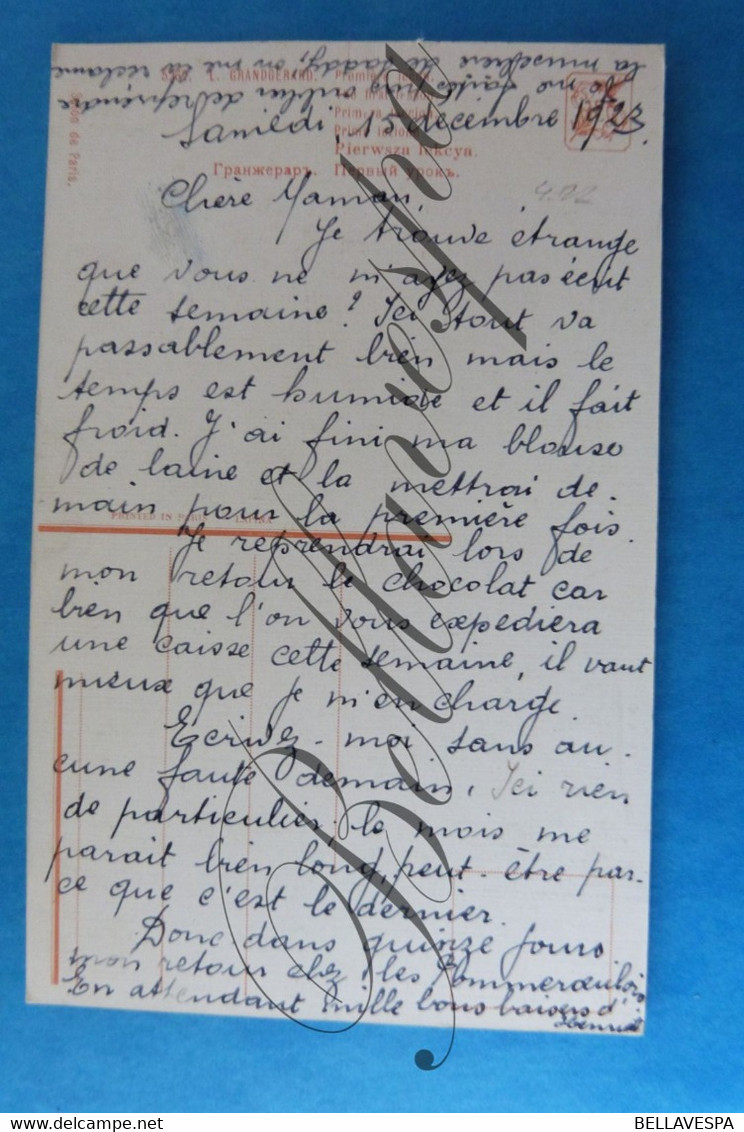 la muselière de Jaddy, on me la réclame
Je ne vais pas oublier de reprendre
Salon de Paris.
5796. L. GRANDGERARD. Première leçon.
First lesson.
Primera lección.
Prima lezione.
Pierwsza lekcya.
Гранжераръ. Первый урокъ.
Samedi, 15 décembre 1923.
Chère Maman,
Je trouve étrange
que vous ne m'ayez pas écrit
cette semaine? Ici tout va
passablement bien mais le
temps est humide et il fait
froid. J'ai fini ma blouse
de laine et la mettrai de-
main pour la première fois.
PRINTED IN PARIS
Je reprendrai lors de
mon retour le chocolat car
bien que l'on vous expédiera
une caisse cette semaine, il vaut
mieux que je m'en charge.
Ecrivez-moi sans au-
cune faute demain. Ici rien
de particulier, le mois me
parait bien long, peut-être par-
ce que c'est le dernier.
Donc dans quinze jours
mon retour chez les Pommeroeulois
En attendant mille bons baisers d'
Henriette
Bellavespa
BELLAVESPA